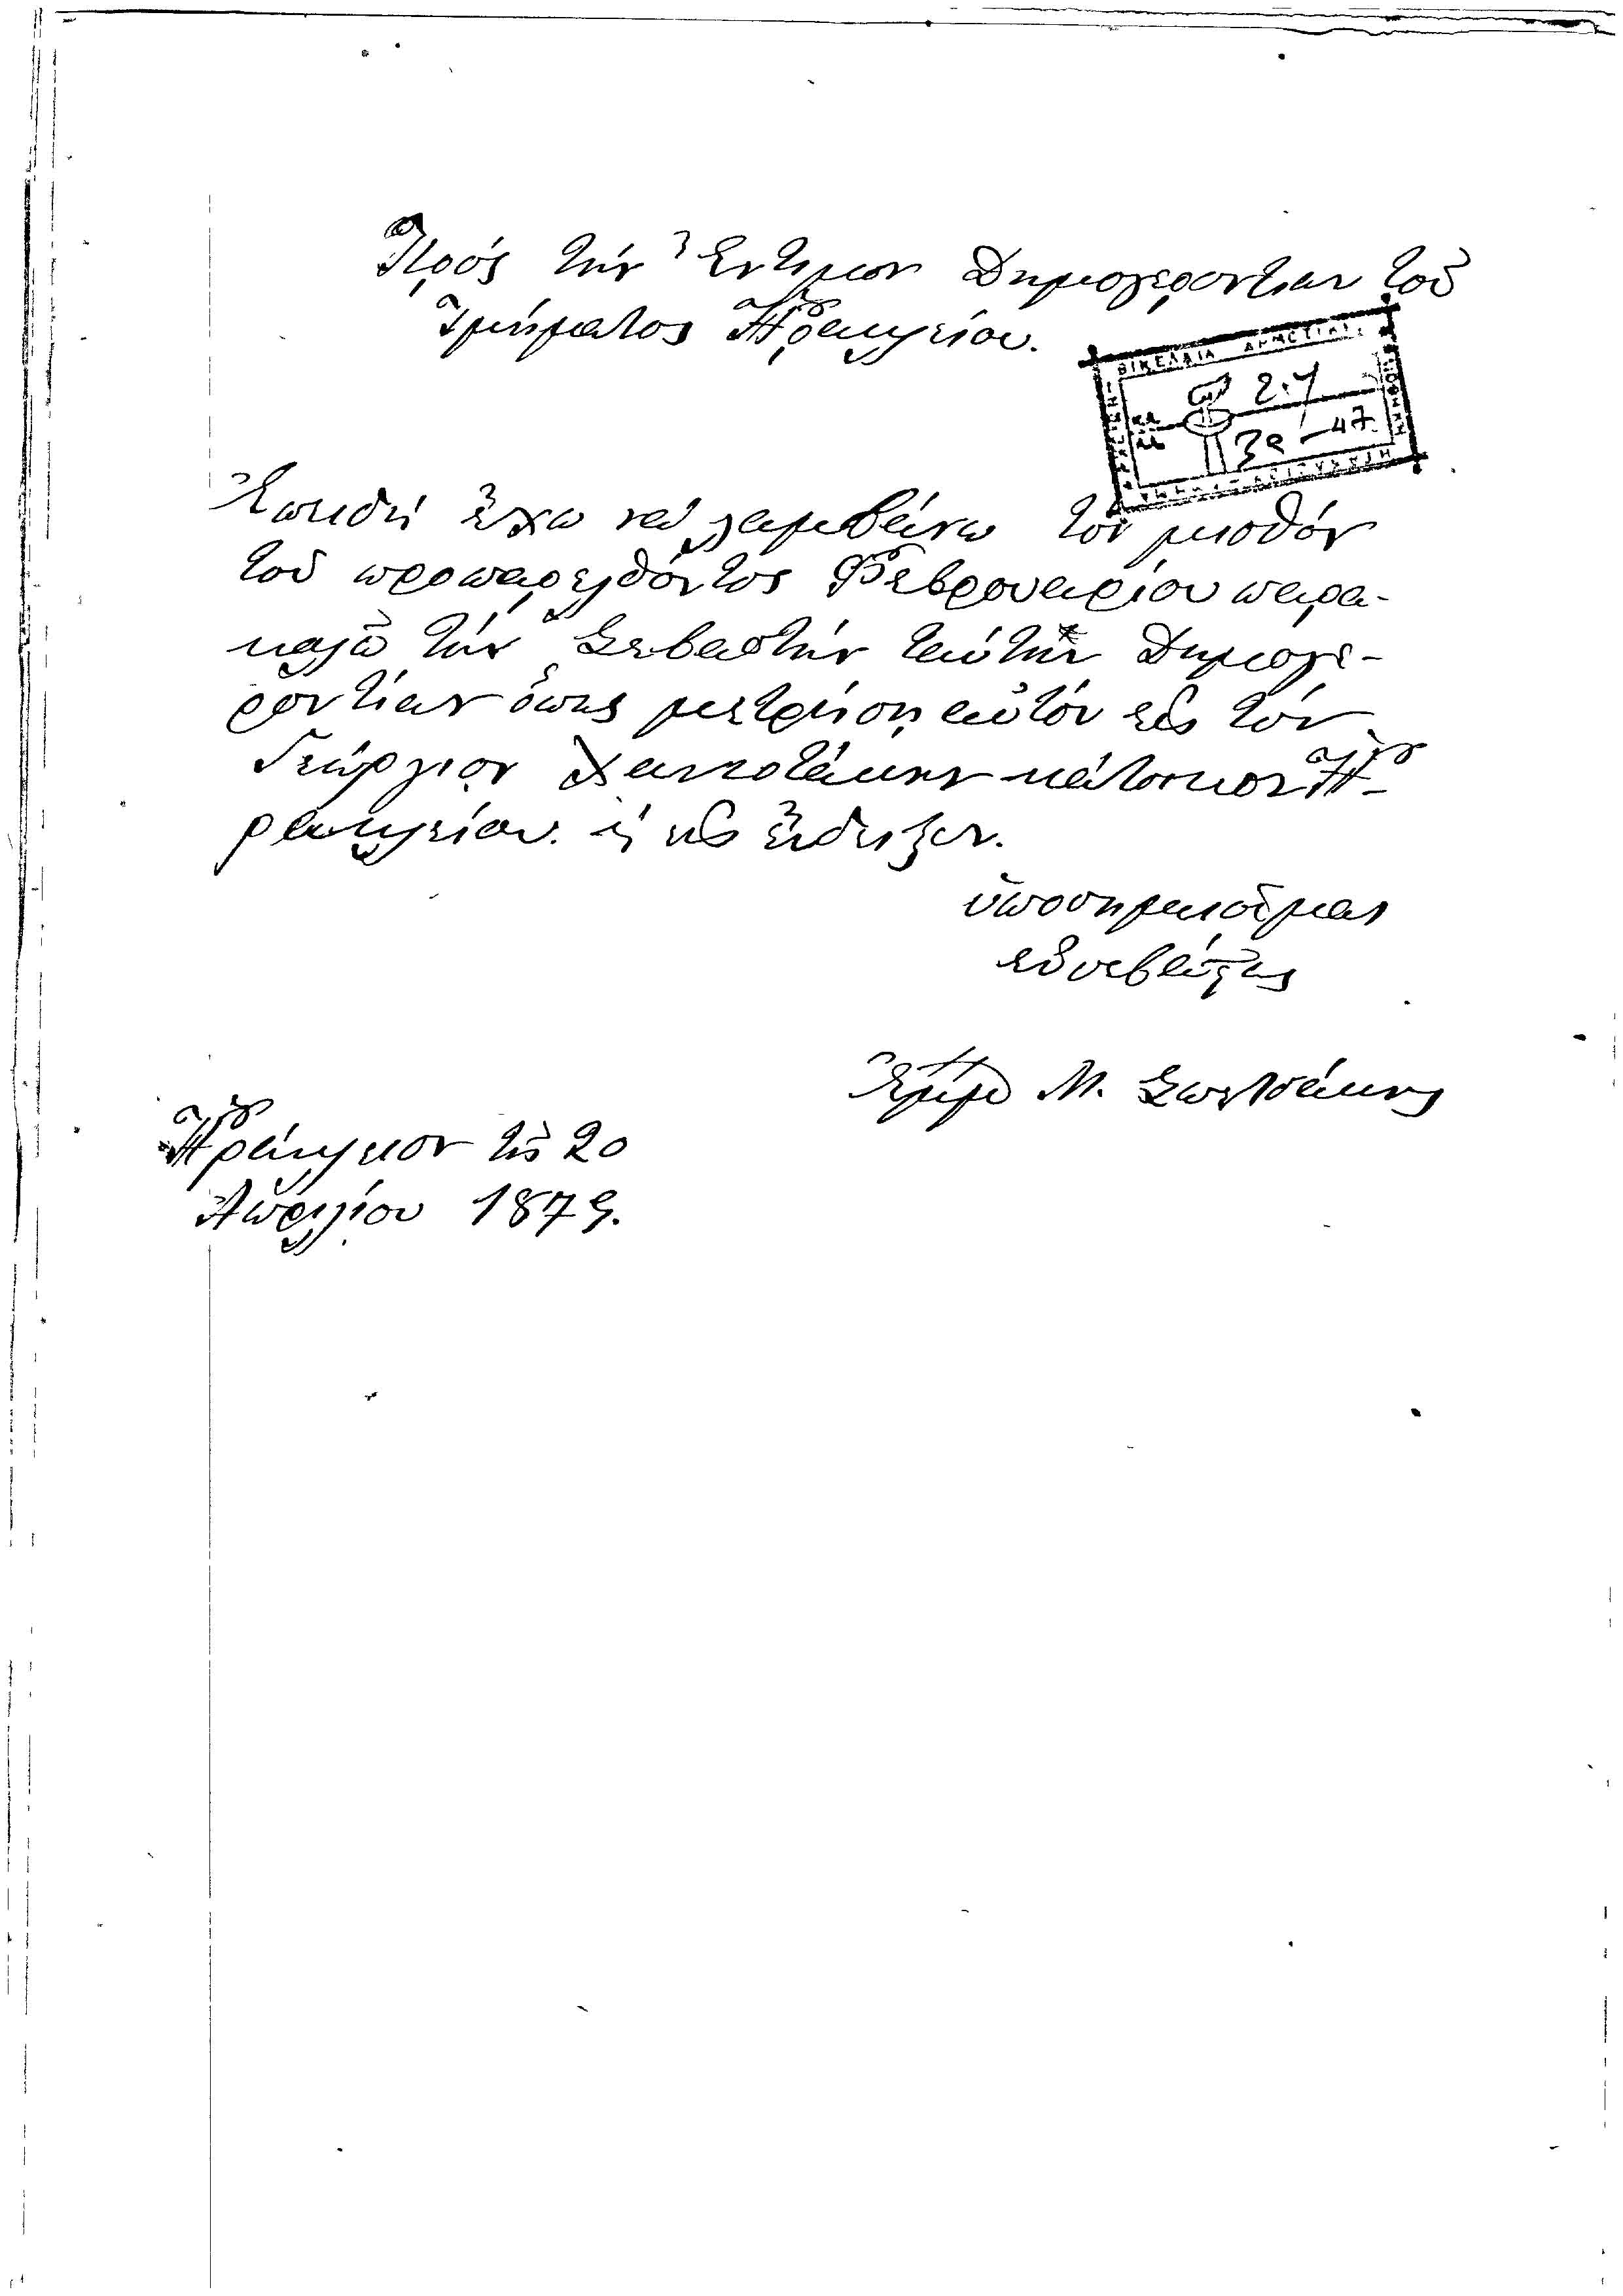 Πρός τήν Ἔντιμον Δημογεροντίαν τοῦ
Τμήματος Ἡρακλείου.
ΒΙΚΕΛΑΙΑ ΔΗΜΟΤΙΚΗ
27
39-47
Ἐπειδή ἔχω νά λαμβάνω τόν μισθόν
τοῦ προπαρελθόντος Φεβρουαρίου παρα-
καλῶ τήν Σεβαστήν ταύτην Δημογε-
ροντίαν ὅπως μετρήση αὐτόν εἰς τόν
Γεώργιον κάτοικον Ἡ-
ρακλείου. ἡ εἰς ἔνδειξιν.
ὑποσημειοῦμαι
εὐσεβάστως
Μ.
Ἡράκλειον τῇ 20
Ἀπριλίου 1879.